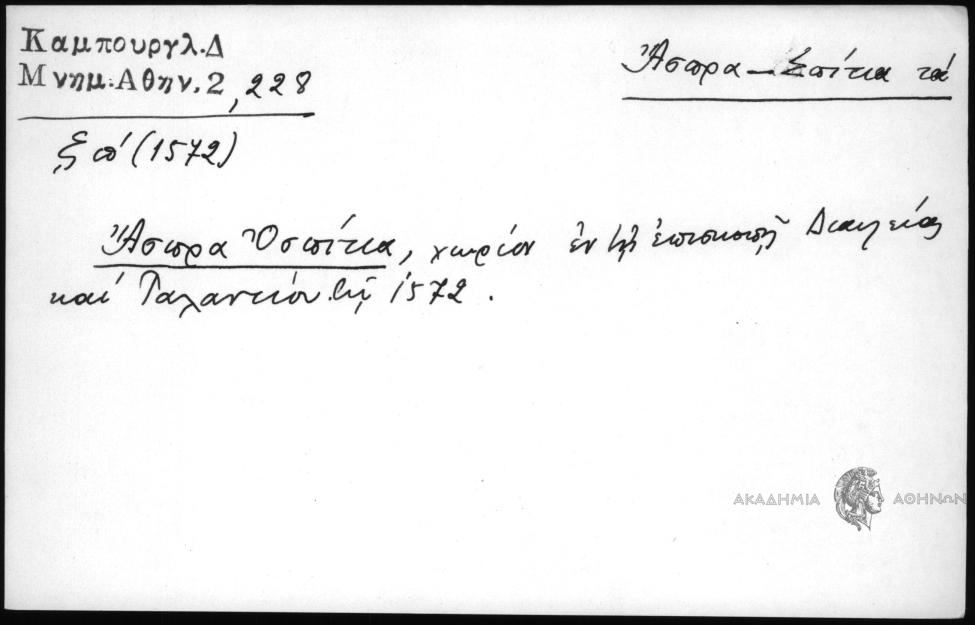 Καμπουργλ.Δ
Μνημ.Αθην.2, 228
Ἄσπρα – Σπίτια τά
(1572)
Ἄσπρα Ὁσπίτια, χωρίον ἐν τῇ ἐπισκοπῇ Διαυλείας
καί Ταλαντίου τῷ 1572.
ΑΚΑΔΗΜΙΑ ΑΘΗΝΩΝ